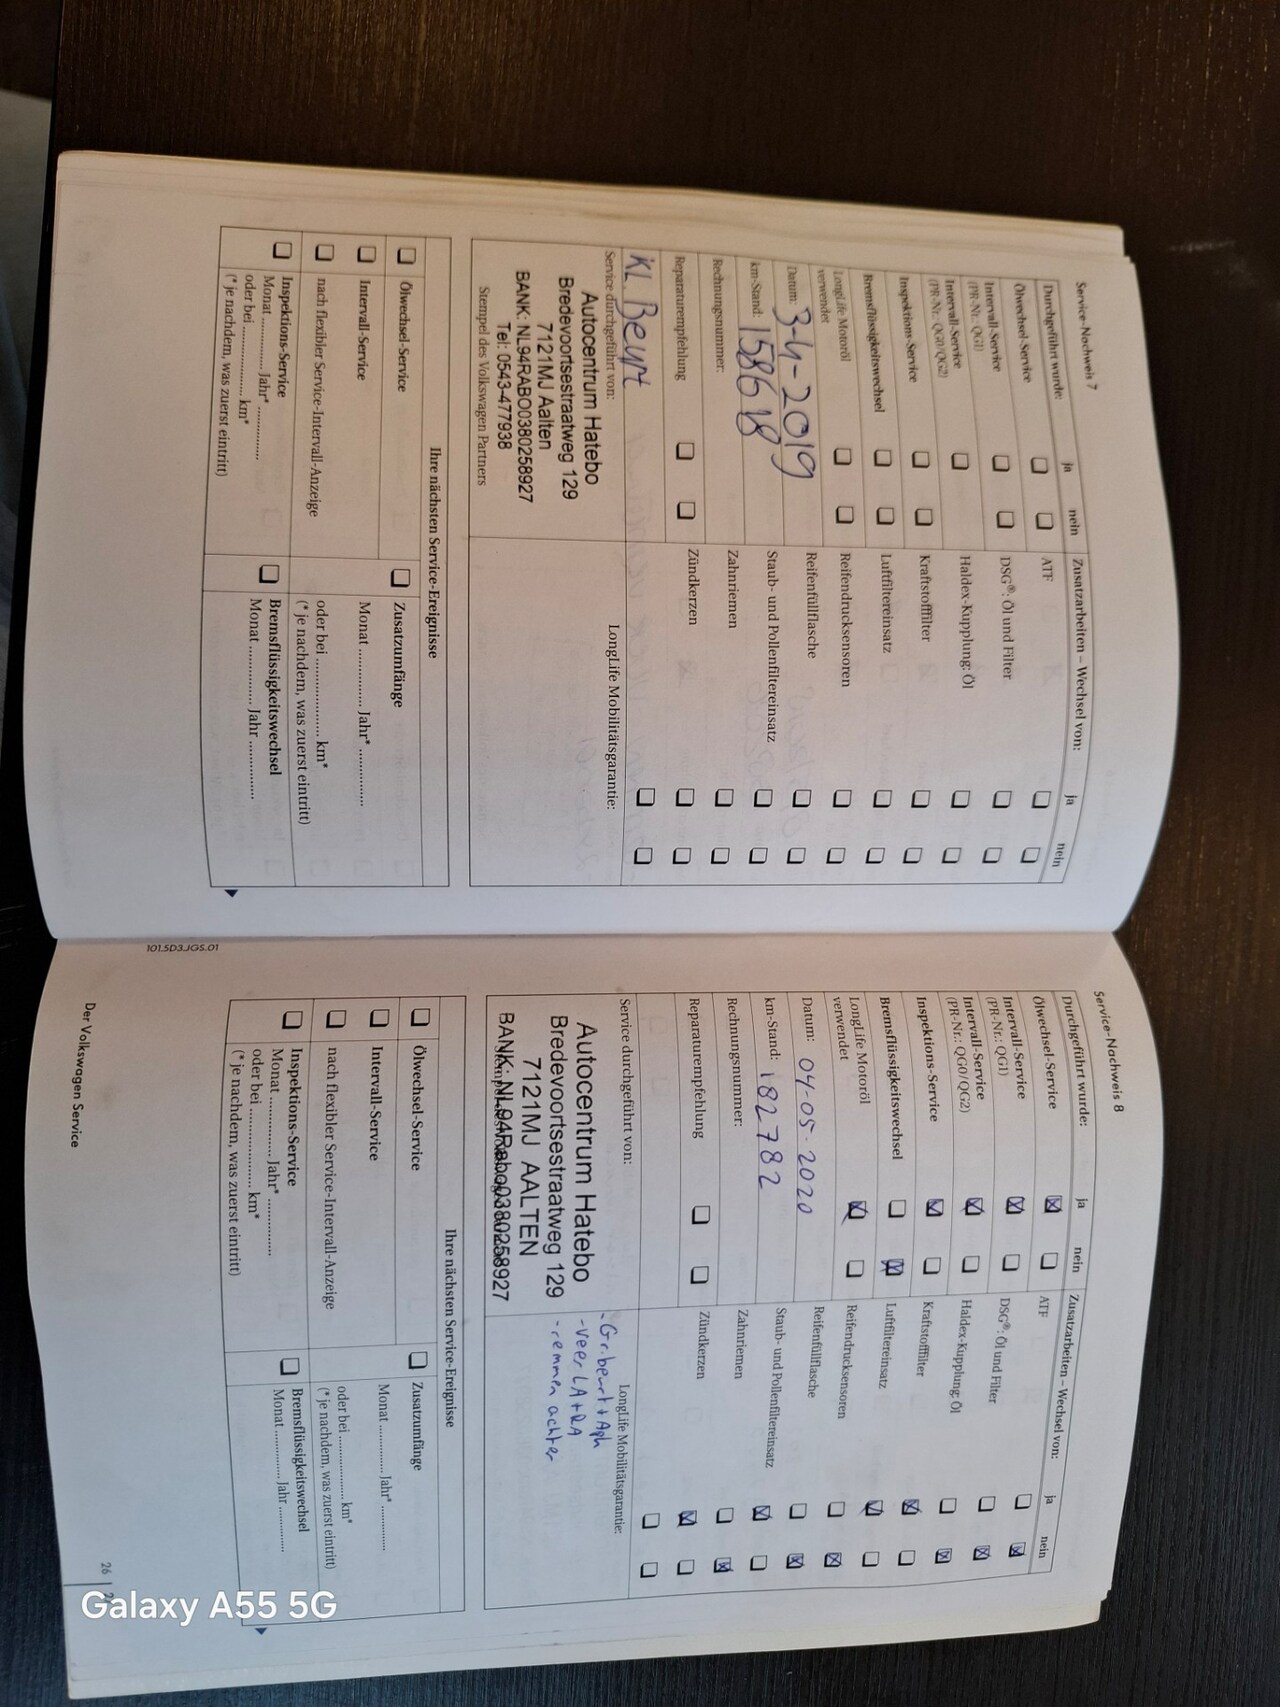 Service-Nachweis 7
Durchgeführt wurde: ja nein
Ölwechsel-Service
Intervall-Service
(PR-Nr.: QG1)
Intervall-Service
(PR-Nr.: QG0/QG2)
Inspektions-Service
Bremsflüssigkeitswechsel
LongLife Motoröl
verwendet
Datum: 3-4-2019
km-Stand: 158618
Rechnungsnummer:
Reparaturempfehlung
KL. Beurt
Service durchgeführt von:
Autocentrum Hatebo
Bredevoortsestraatweg 129
7121MJ Aalten
BANK: NL94RABO0380258927
Tel: 0543-477938
Stempel des Volkswagen Partners
Zusatzarbeiten – Wechsel von: ja nein
ATF
DSG®: Öl und Filter
Haldex-Kupplung: Öl
Kraftstofffilter
Luftfiltereinsatz
Reifendrucksensoren
Reifenfüllflasche
Staub- und Pollenfiltereinsatz
Zahnriemen
Zündkerzen
LongLife Mobilitätsgarantie:
Ihre nächsten Service-Ereignisse
Ölwechsel-Service
Intervall-Service
nach flexibler Service-Intervall-Anzeige
Inspektions-Service
Monat ............. Jahr* .............
oder bei .................. km*
(* je nachdem, was zuerst eintritt)
Zusatzumfänge
Monat ............. Jahr* .............
oder bei .................. km*
(* je nachdem, was zuerst eintritt)
Bremsflüssigkeitswechsel
Monat ............. Jahr .............
101.5D3.JGS.01
Service-Nachweis 8
Durchgeführt wurde: ja nein
Ölwechsel-Service
Intervall-Service
(PR-Nr.: QG1)
Intervall-Service
(PR-Nr.: QG0/QG2)
Inspektions-Service
Bremsflüssigkeitswechsel
LongLife Motoröl
verwendet
Datum: 04-05-2020
km-Stand: 182782
Rechnungsnummer:
Reparaturempfehlung
Service durchgeführt von:
Autocentrum Hatebo
Bredevoortsestraatweg 129
7121MJ AALTEN
BANK: NL94Rabo0380258927
Zusatzarbeiten – Wechsel von: ja nein
ATF
DSG®: Öl und Filter
Haldex-Kupplung: Öl
Kraftstofffilter
Luftfiltereinsatz
Reifendrucksensoren
Reifenfüllflasche
Staub- und Pollenfiltereinsatz
Zahnriemen
Zündkerzen
LongLife Mobilitätsgarantie:
- Gr. beurt + Apk
- veer LA + RA
- remmen achter
Ihre nächsten Service-Ereignisse
Ölwechsel-Service
Intervall-Service
nach flexibler Service-Intervall-Anzeige
Inspektions-Service
Monat ............. Jahr* .............
oder bei .................. km*
(* je nachdem, was zuerst eintritt)
Zusatzumfänge
Monat ............. Jahr* .............
oder bei .................. km*
(* je nachdem, was zuerst eintritt)
Bremsflüssigkeitswechsel
Monat ............. Jahr .............
Der Volkswagen Service
26
Galaxy A55 5G